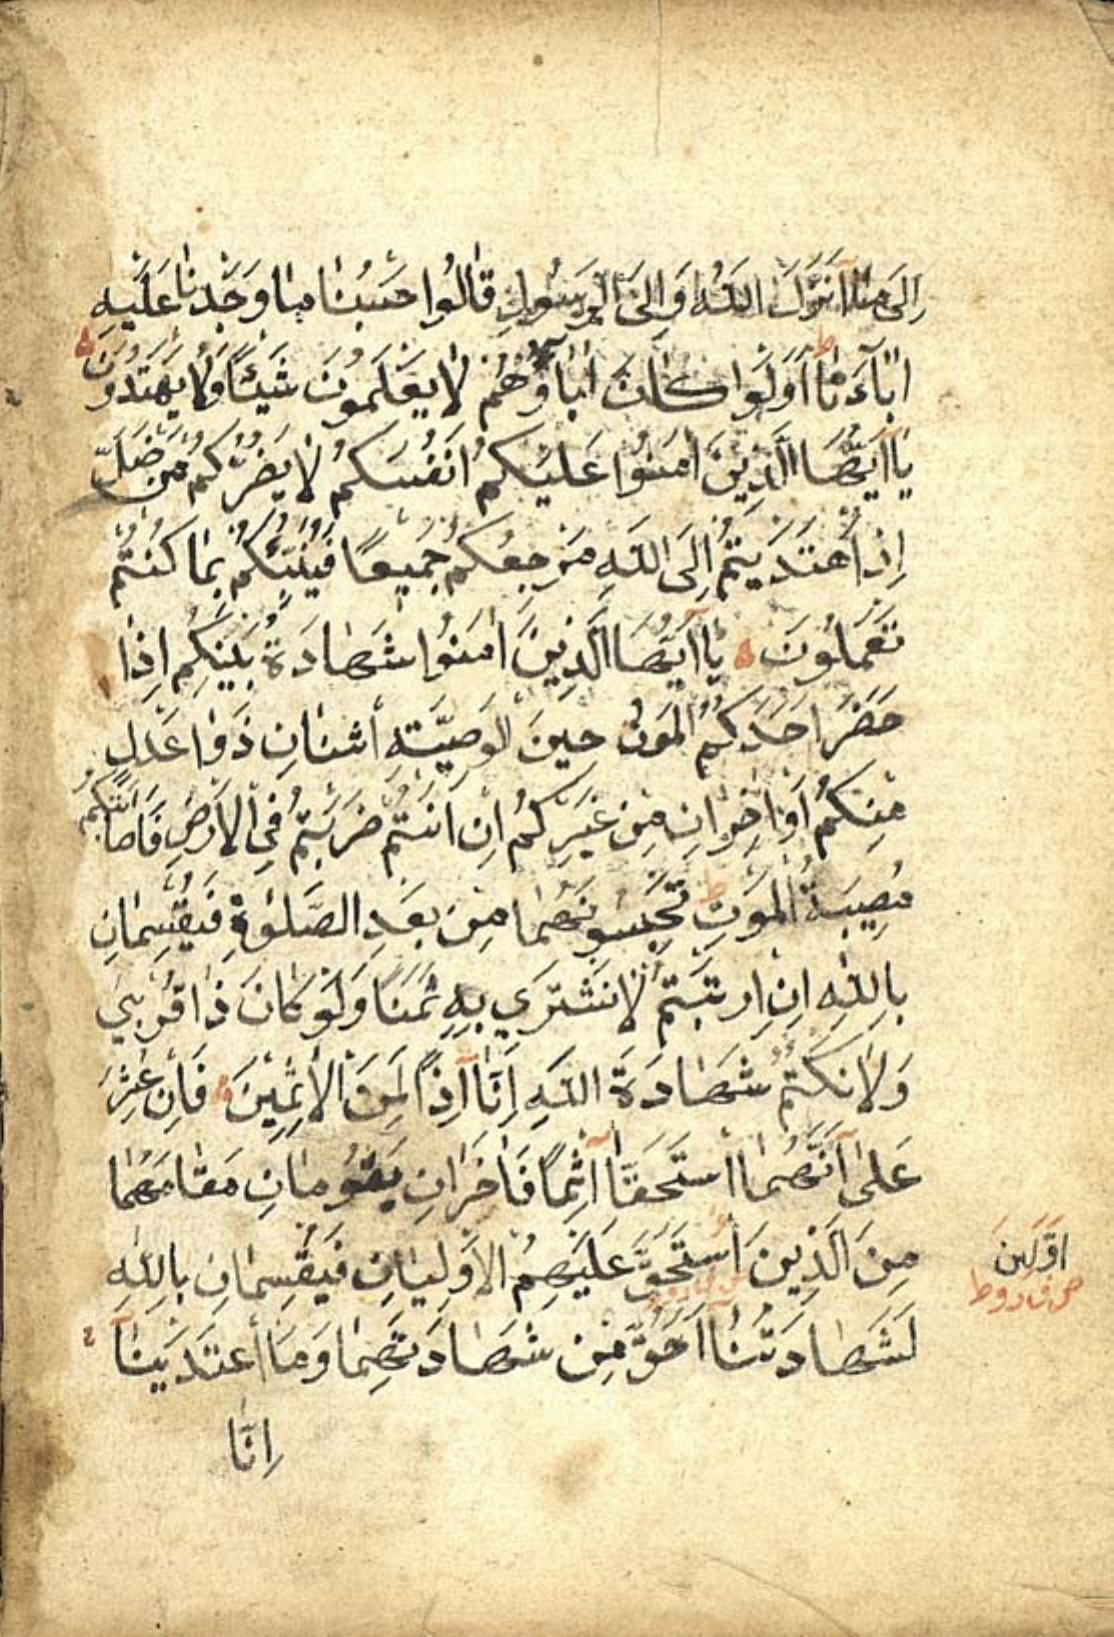 اِلَى مَا اَنْزَلَ اللّٰهُ وَاِلَى الرَّسُولِ قَالُوا حَسْبُنَا مَا وَجَدْنَا عَلَيْهِ
اٰبَاءَنَا ط اَوَلَوْ كَانَ اٰبَاؤُهُمْ لَا يَعْلَمُونَ شَيْئًا وَلَا يَهْتَدُونَ
يَا اَيُّهَا الَّذِينَ اٰمَنُوا عَلَيْكُمْ اَنْفُسَكُمْ لَا يَضُرُّكُمْ مَنْ ضَلَّ
اِذَا اهْتَدَيْتُمْ اِلَى اللّٰهِ مَرْجِعُكُمْ جَمِيعًا فَيُنَبِّئُكُمْ بِمَا كُنْتُمْ
تَعْمَلُونَ يَا اَيُّهَا الَّذِينَ اٰمَنُوا شَهَادَةُ بَيْنِكُمْ اِذَا
حَضَرَ اَحَدَكُمُ الْمَوْتُ حِينَ الْوَصِيَّةِ اثْنَانِ ذَوَا عَدْلٍ
مِنْكُمْ اَوْ اٰخَرَانِ مِنْ غَيْرِكُمْ اِنْ اَنْتُمْ ضَرَبْتُمْ فِي الْاَرْضِ فَاَصَابَتْكُمْ
مُصِيبَةُ الْمَوْتِ ط تَحْبِسُونَهُمَا مِنْ بَعْدِ الصَّلٰوةِ فَيُقْسِمَانِ
بِاللّٰهِ اِنِ ارْتَبْتُمْ لَا نَشْتَرِي بِهِ ثَمَنًا وَلَوْ كَانَ ذَا قُرْبٰى
وَلَا نَكْتُمُ شَهَادَةَ اللّٰهِ اِنَّا اِذًا لَمِنَ الْاٰثِمِينَ فَاِنْ عُثِرَ
عَلٰى اَنَّهُمَا اسْتَحَقَّا اِثْمًا فَاٰخَرَانِ يَقُومَانِ مَقَامَهُمَا
مِنَ الَّذِينَ اسْتَحَقَّ عَلَيْهِمُ الْاَوْلَيَانِ فَيُقْسِمَانِ بِاللّٰهِ
لَشَهَادَتُنَا اَحَقُّ مِنْ شَهَادَتِهِمَا وَمَا اعْتَدَيْنَا
اِنَّا
اَوَّلِينَ